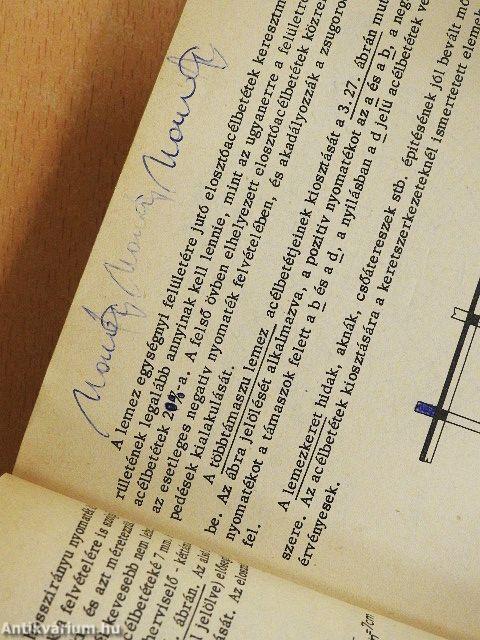 A lemez egységnyi felületére jutó elosztóacélbetétek kereszm
rületének legalább annyinak kell lennie, mint az ugyanerre a felületre
acélbetétek 20%-a. A felső övben elhelyezett elosztóacélbetétek közre
az esetleges negativ nyomaték felvételében, és akadályozzák a zsugoro
pedések kialakulását.
A többtámaszu lemez acélbetétjeinek kiosztását a 3.27. ábrán mut
be. Az ábra jelölését alkalmazva, a pozitiv nyomatékot az a és a b, a neg
nyomatékot a támaszok felett a b és a d, a nyilásban a d jelü acélbetétek ve
fel.
A lemezkeret hidak, aknák, csőátereszek stb. építésének jól bevált mó
szere. Az acélbetétek kiosztására a keretszerkezeteknél ismertetett elemek
érvényesek.
sszirányu nyomaték
felvételére is szog
és azt méretezni
evesebb nem leh
élbetéteké 7 mm.
herviselő - kéttám
ábrán. Az alsó
l jelölve) előseg
ását. Az eloszt
Antikvárium.hu